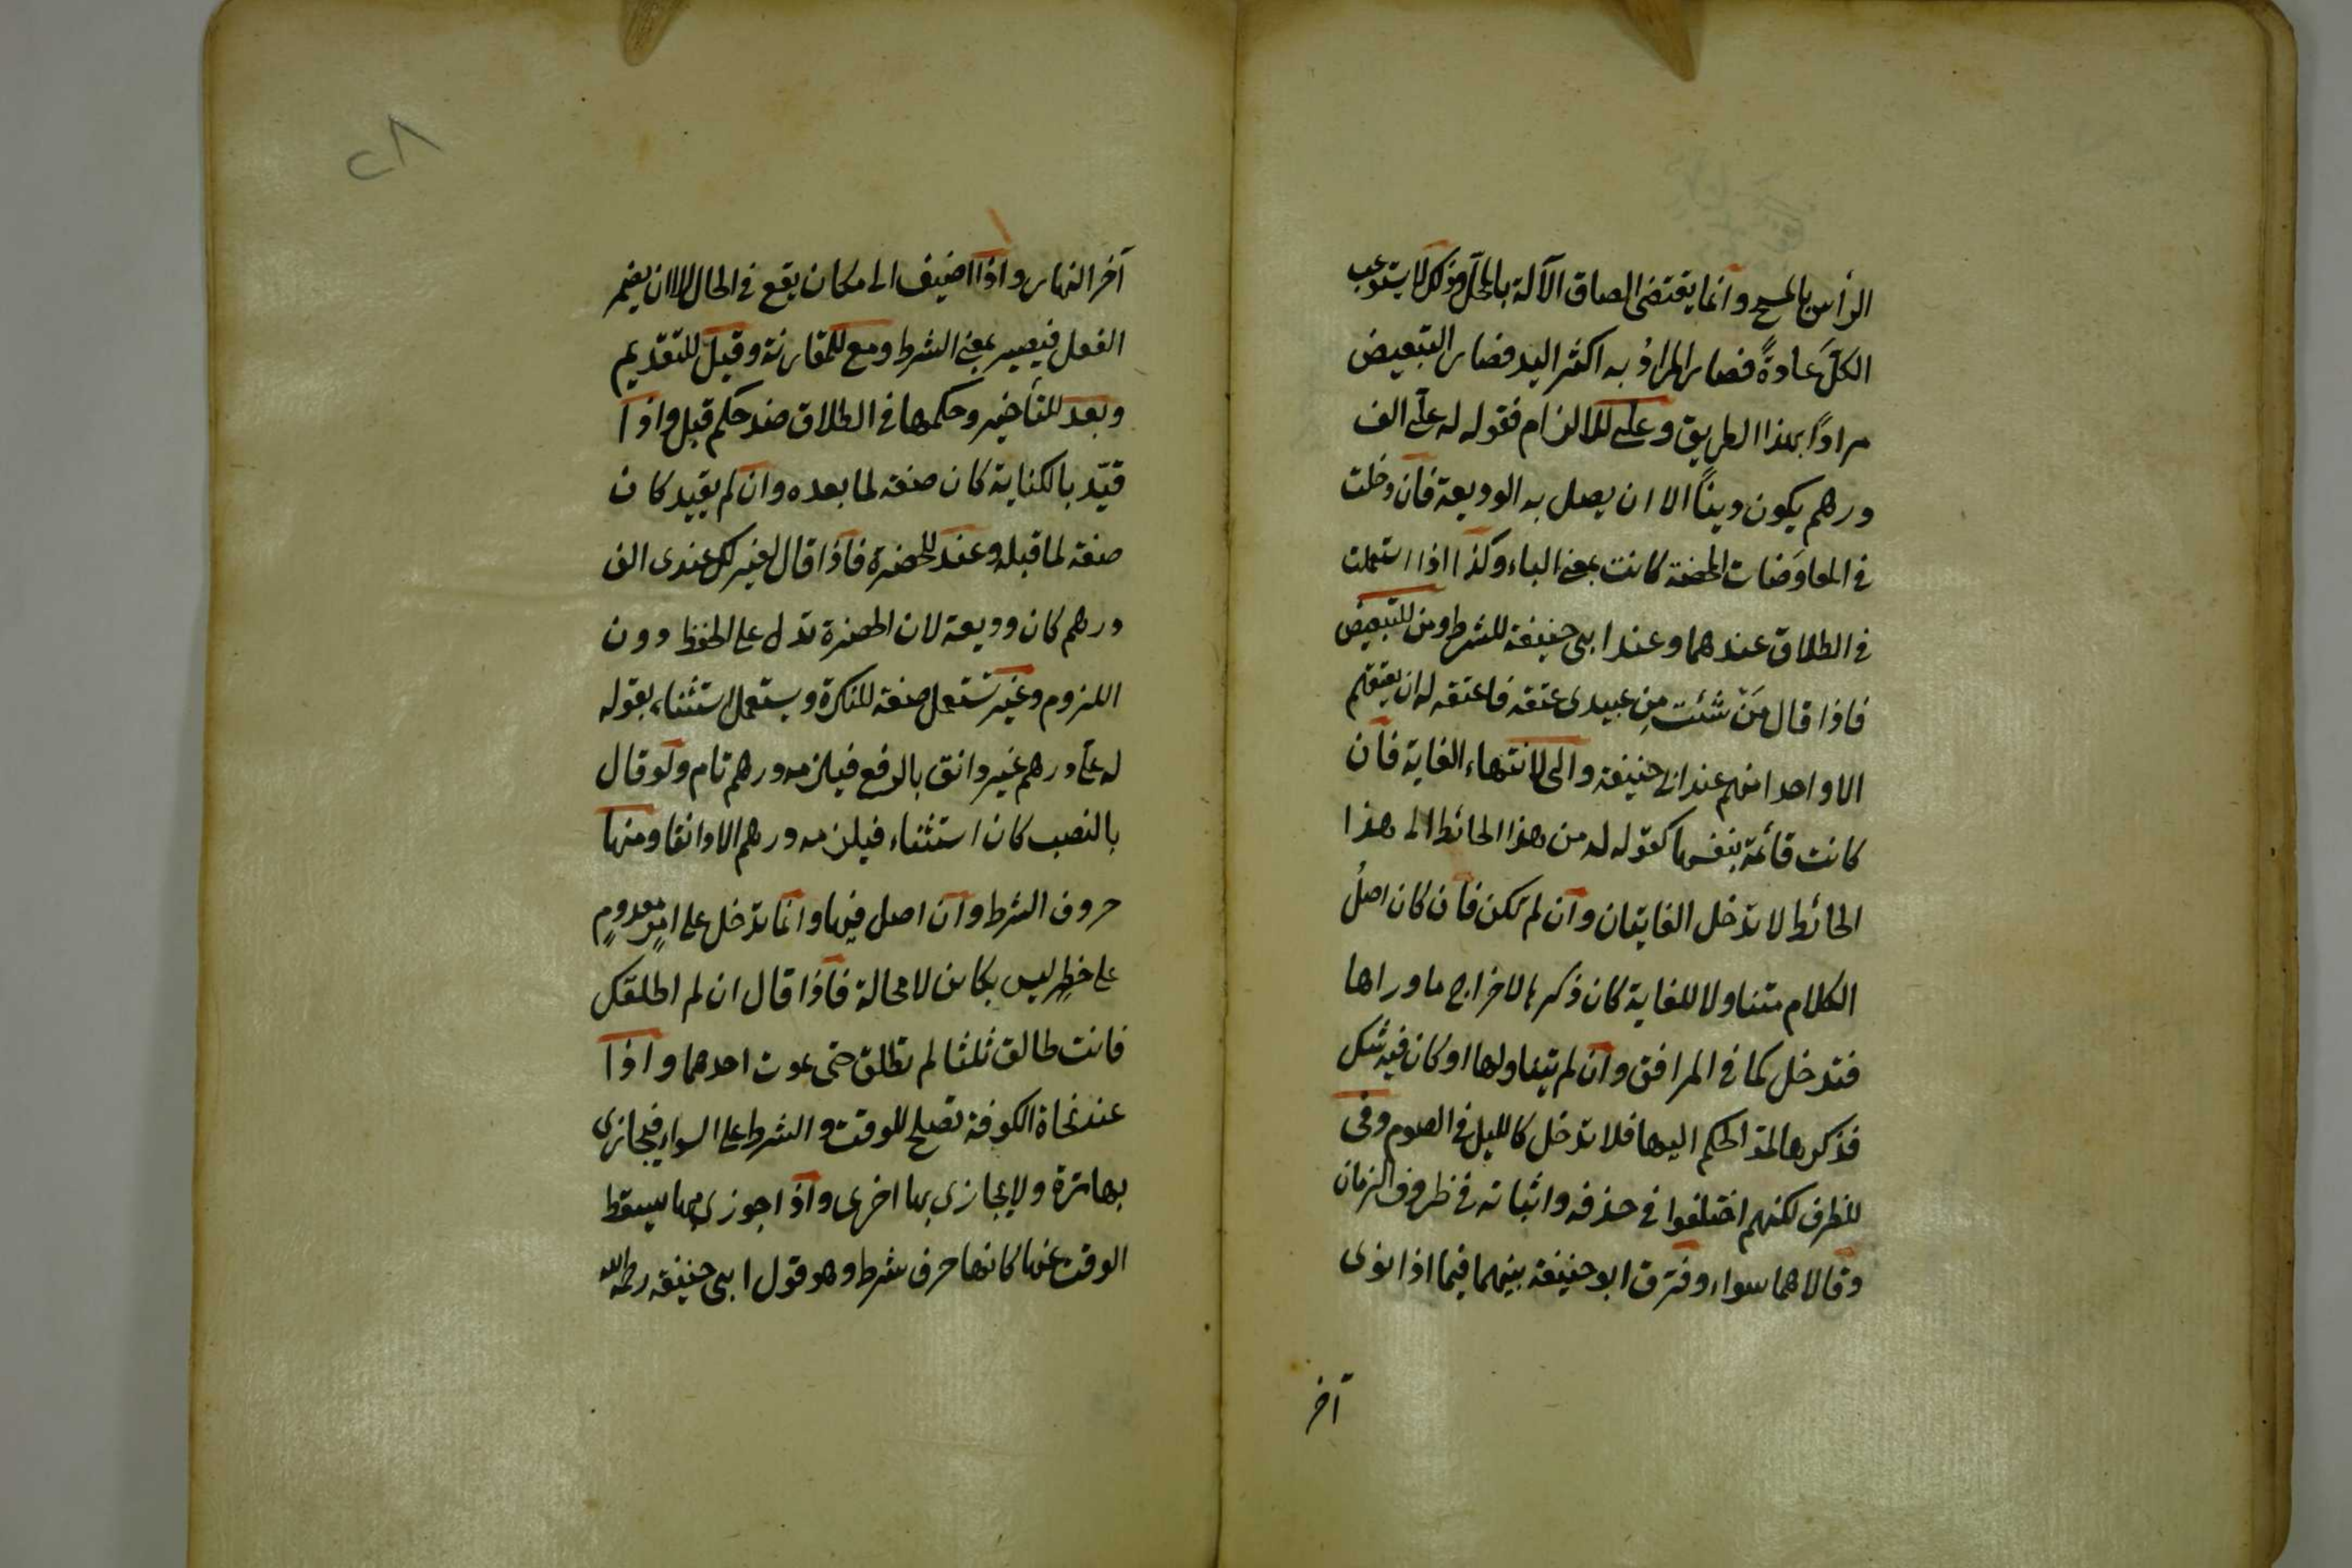 الرأس بالمسح وانما يقتضى الصاق الآلة بالمحل وذلك لا يستوعب
الكلَّ عادةً فصار المرادُ به اكثر اليد فصار التبعيض
مرادًا بهذا الطريق وعلى للالزام فقوله له علىّ الف
درهم يكون دينًا الا ان يصل به الوديعة فان دخلت
فى المعاوَضات المحضة كانت بمعنى الباء وكذا اذا استعملت
فى الطلاق عندهما وعند ابى حنيفة للشرط ومن للتبعيض
فاذا قال مَنْ شئت مِن عبيدى عتقه فاعتقه له ان يعتقهم
الا واحدا منهم عند ابى حنيفة والى لانتهاء الغاية فان
كانت قائمة بنفسها كقوله له من هذا الحائط الى هذا
الحائط لا تدخل الغايتان وان لم تكن فان كان اصلُ
الكلام متناولا للغاية كان ذكرها لاخراج ما وراها
فتدخل كما فى المرافق وان لم يتناولها او كان فيه شك
فذكرها لمد الحكم اليها فلا تدخل كالليل فى الصوم وفى
للظرف لكنهم اختلفوا فى حذفه واثباته فى ظروف الزمان
وقالا هما سواء وفرق ابو حنيفة بينهما فيما اذا نوى
آخر
٢٨
آخر النهار واذا اضيف الى مكان يقع فى الحال الا ان يضمر
الفعل فيصير بمعنى الشرط ومع للمقارنة وقبل للتقديم
وبعد للتأخير وحكمها فى الطلاق ضد حكم قبل واذا
قيّد بالكناية كان صفة لما بعده وان لم يقيد كان
صفة لما قبله وعند للحضرة فاذا قال لغيره لك عندى الف
درهم كان وديعة لان الحضرة تدل على الحفظ دون
اللزوم وغير تستعمل صفة للنكرة ويستعمل استثناء بقوله
له علىّ درهم غير دانق بالرفع فيلزمه درهم تام ولو قال
بالنصب كان استثناء فيلزمه درهم الا دانقا ومنها
حروف الشرط وان اصل فيها وانما تدخل على امرٍ معدومٍ
على خطرٍ ليس بكائن لا محالة فاذا قال ان لم اطلقك
فانت طالق ثلثا لم تطلق حتى يموت احدهما واذا
عند نحاة الكوفة تصلح للوقت والشرط على السواء فيجازى
بها مرة ولا يجازى بها اخرى واذا جوزى بها يسقط
الوقت عنها كانها حرف شرط وهو قول ابى حنيفة رحمه الله